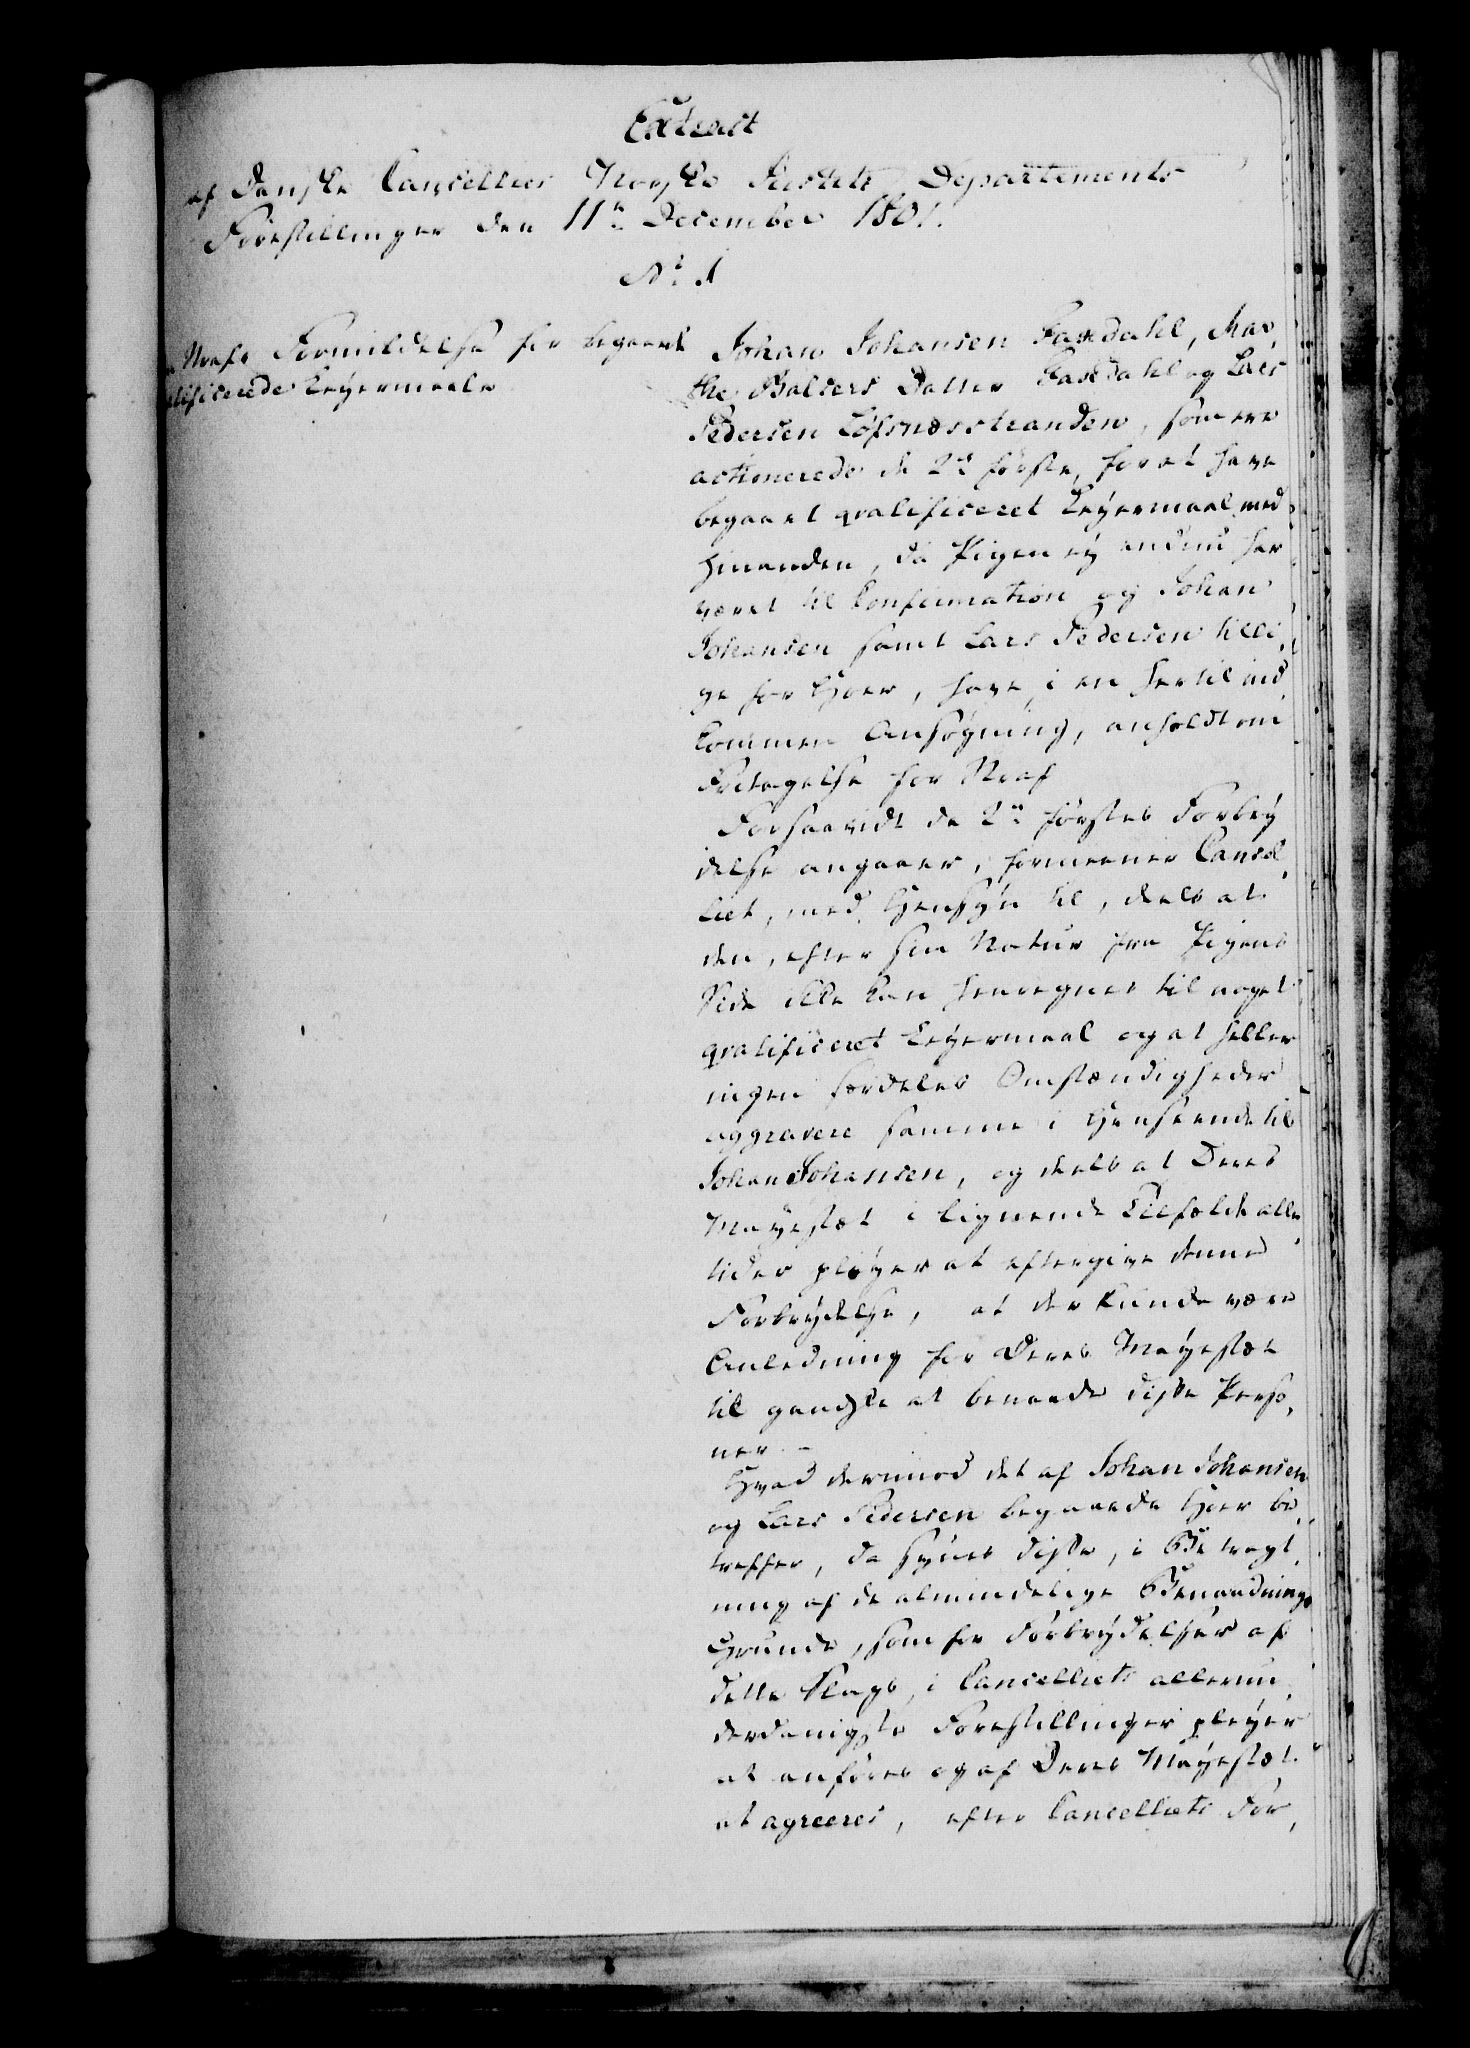 Extract
af Danske Cancellies Norske Justits Departements
Forestillinger den 11te December 1801.
No. 1
Straffs Formildelse for begaaet
qvalificerede Leyermaale
Johan Johansen Faxdahl, Mar
the Balsers Datter Faxdahl og Lars
Pedersen Løfsnæsstranden, som ere
actionerede de 2de første, for at have
begaaet qvalificeret Leyermaal med
hinanden, da Pigen ey endnu har
været til Confirmation og Johan
Johansen samt Lars Pedersen tilli,
ge for Hoer, have i en hertil ind
kommen Ansøgning, anholdt om
Fritagelse for Straf
Forsaavidt de 2de førstes Forbry
delse angaaer, formeener Cancel
liet, med Hensyn til, deels at
den, efter sin Natur fra Pigens
Side ikke kan henregnes til noget
qvalificeret Leyermaal og at heller
ingen særdeles Omstændigheder
aggravere samme i Henseende til
Johan Johansen, og deels at Deres
Mayestæt i lignende Tilfælde alle
tider pleyer at eftergive denne
Forbrydelse, at der kunde være
Anledning for Deres Mayestæt
til gandske at benaade disse Perso,
ner -
Hvad derimod det af Johan Johansen
og Lars Pedersen begaaede Hoer be,
treffer, da synes disse, i Betragt
ning af de almindelige Benaadnings
Grunde, som for Forbrydelser af
dette Slags, i Cancelliets allerun
derdanigste Forestillinger pleyer
at anføres og af Deres Mayestæt
at agreeres, efter Cancelliets For,